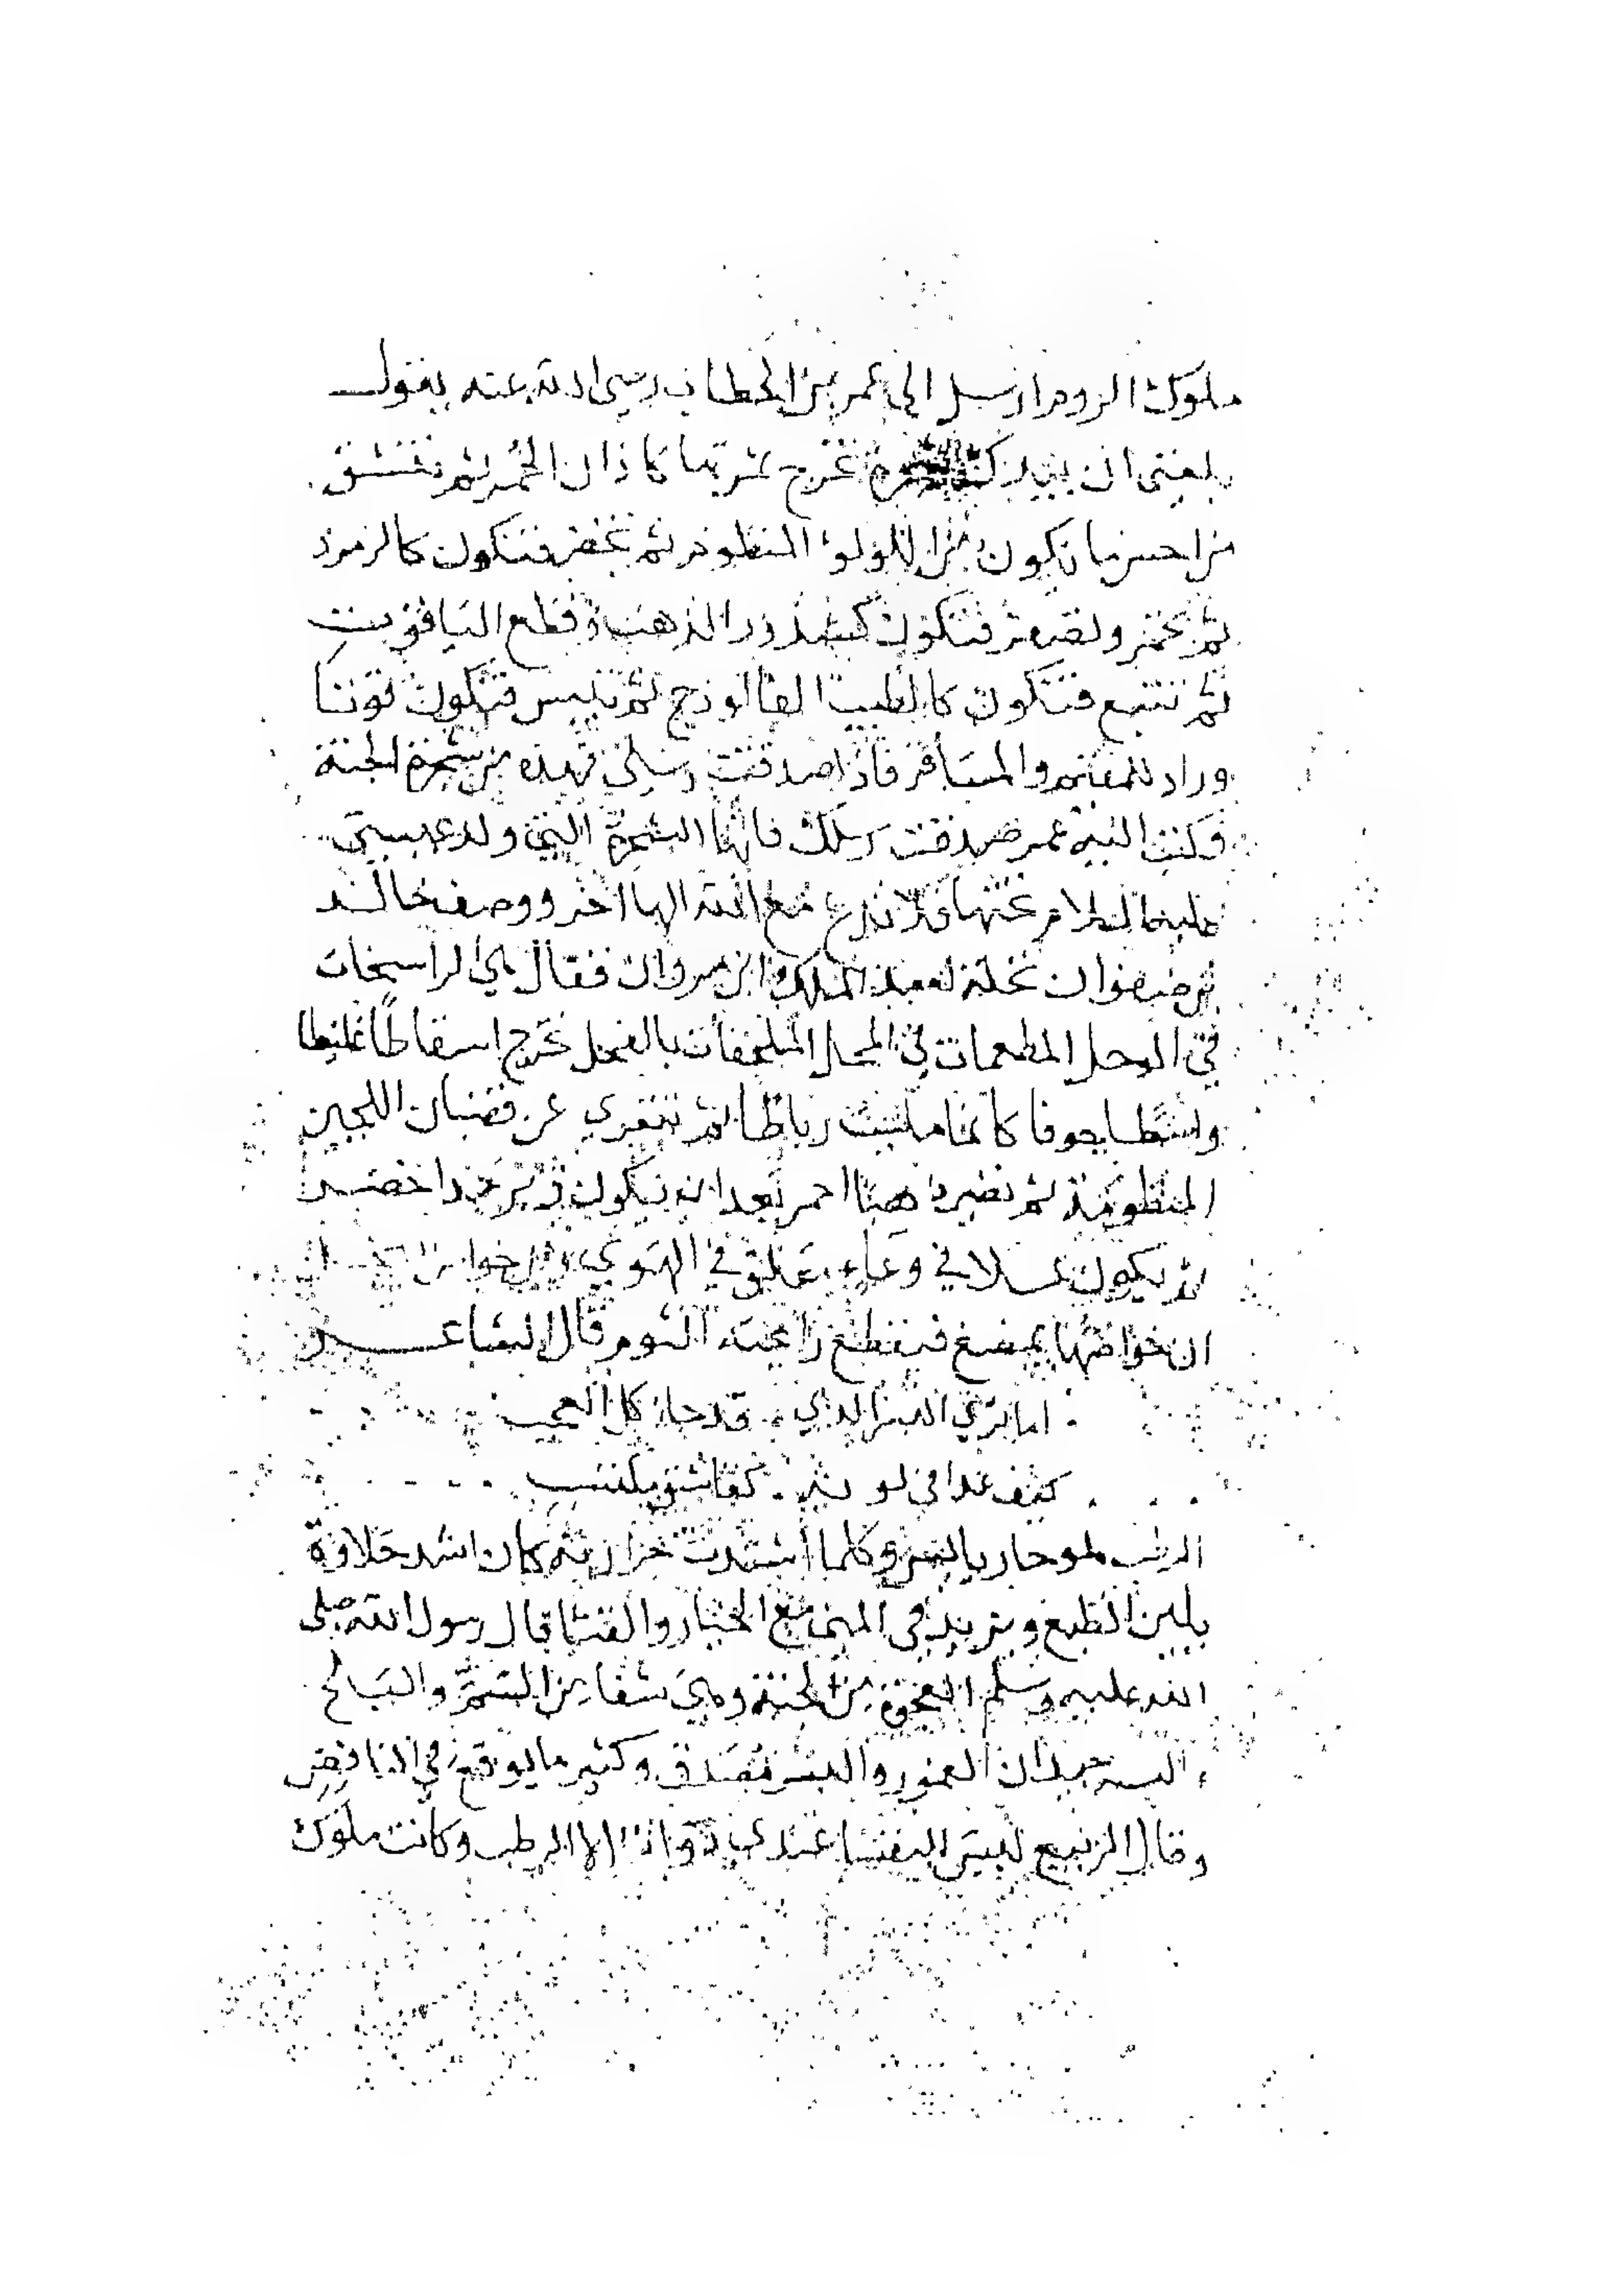 ملوك الروم ارسل الى عمر بن الخطاب رضى الله عنه يقول
بلغنى ان ببلدك شجرة تخرج ثمرتها كاذان الحمر ثم تنشق
من احسن ما تكون من اللولو المنظوم ثم تخضر فتكون كالزمرد
ثم تحمر وتصفر فتكون كشذور الذهب وقطع الياقوت
ثم تينع فتكون كاطيب الفالوذج ثم تيبس فتكون قوتا
وزاد للمقيم والمسافر فان صدقت رسلى فهذه من شجرة الجنة
فكتب اليه عمر صدقت رسلك فانها الشجرة التي ولد عيسى
عليه السلام تحتها فلا تدع مع الله الها اخر ووصف خالد
بن صفوان نخلة لعبد الملك بن مروان فقال هي الراسخات
في الوحل المطعمات في المحل الملحفات بالفحل تخرج اسفاطا غليظا
واوسطا جوفا كانما ملئت رياطا ثم تتفرى عن قضبان اللجين
المنظومة ثم تصير ذهبا احمر بعد ان تكون زبرجدا اخضر
ثم يكون عسلا في وعاء معلق في الهوى ومن خواص
ان خواصها يمضغ فيقطع رائحة الثوم قال الشاعر
اما ترى البسر الذي قد حاز كل العجب
كيف غدا في لونه كعاشق مكتئب
الرطب حار بالتمر وكلما اشتدت حرارته كان اشد حلاوة
يلين الطبع ويزيد في المنى مع الخيار والقثا قال رسول الله صلى
الله عليه وسلم العجوة من الجنة وهي شفا من السم والبلح
البسر جيدان العمور والبسر مصدق وكثير ما يوقع في النافض
وقال الربيع ليس للنفسا عندي دوا الا الرطب وكانت ملوك